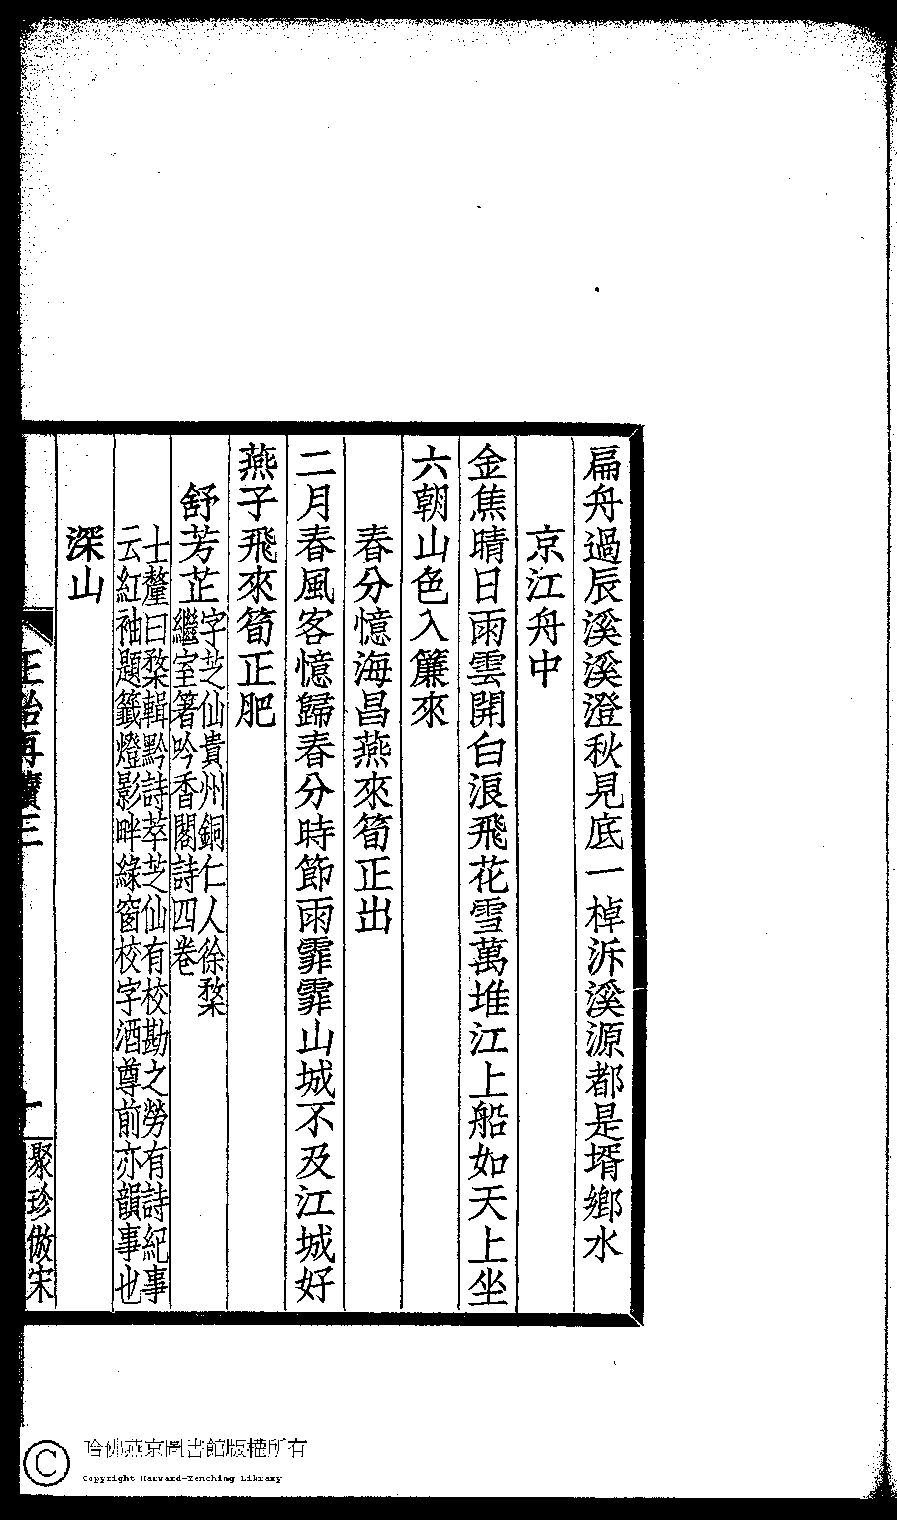 扁舟過辰溪溪澄秋見底一棹泝溪源都是壻鄉水
京江舟中
金焦晴日雨雲開白浪飛花雪萬堆江上船如天上坐
六朝山色入簾來
春分憶海昌燕來筍正出
二月春風客憶歸春分時節雨霏霏山城不及江城好
燕子飛來筍正肥
舒芳芷
字芝仙貴州銅仁人徐楘
繼室箸吟香閣詩四卷
士釐曰楘輯黔詩萃芝仙有校勘之勞有詩紀事
云紅袖題籤燈影畔綠窗校字酒尊前亦韻事也
深山
正始再續三
十
聚珍倣宋
哈佛燕京圖書館版權所有
Copyright Harvard-Yenching Library